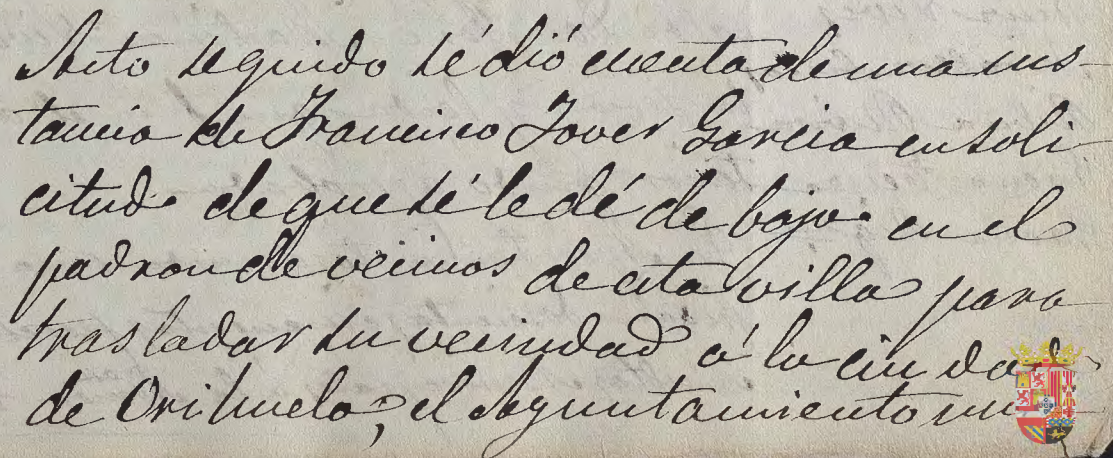 Acto seguido sé dió cuenta de una ins-
tancia de Francisco Jover Garcia en soli
citud de que sé le dé de baja en el
padron de vecinos de esta villa para
trasladar su vecindad á la ciudad
de Orihuela; el Ayuntamiento